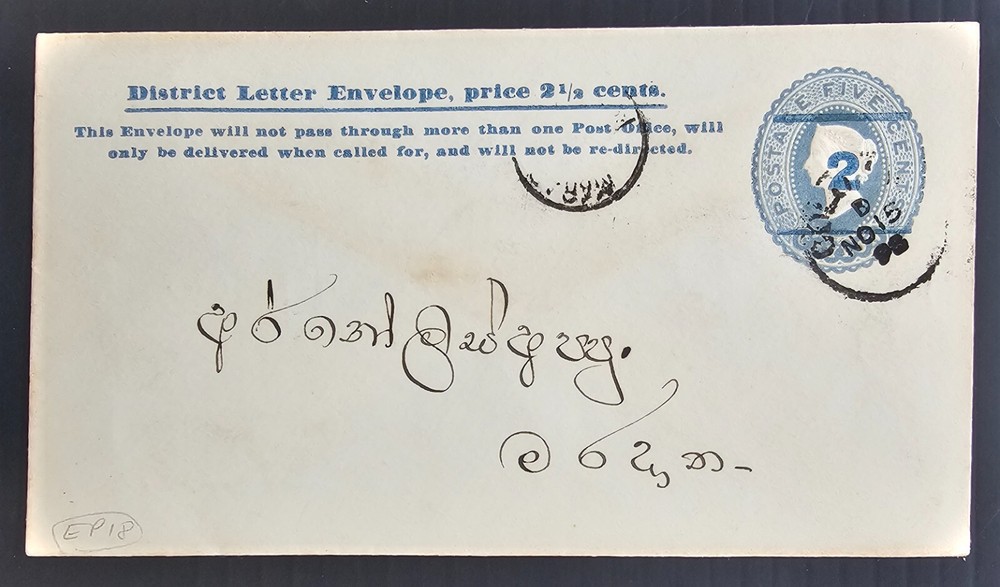 District Letter Envelope, price 2½ cents.
This Envelope will not pass through more than one Post Office, will
only be delivered when called for, and will not be re-directed.
POSTAGE FIVE CENTS
2
B
NO 15
98
MAR
අර්නෝලිස් අප්පු.
මරදාන-
EP18